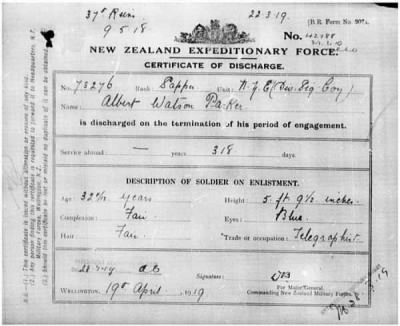 37th Rein 22.3.19. [B.R. Form No. 307A.
9.5.18 No. 42188
NEW ZEALAND EXPEDITIONARY FORCE.
CERTIFICATE OF DISCHARGE.
No. 73276 Rank: Sapper Unit: N.Z.E (Div. Sig. Coy)
Name: Albert Watson Parker
is discharged on the termination of his period of engagement.
Service abroad — years 318 days.
DESCRIPTION OF SOLDIER ON ENLISTMENT.
Age: years Height: 5 ft 9½ inches
Complexion: Fair Eyes: Blue
Hair: Fair Trade or occupation: Telegraphist
Signature:
For Major-General,
WELLINGTON, 19th April, 1919 Commanding New Zealand Military Forces.
N.B.—(1.) This certificate is issued without alteration or erasure of any kind.
(2.) Any person finding this certificate is requested to forward it to Headquarters, N.Z. Military Forces, Wellington, N.Z.
(3.) Should this certificate be lost or mislaid no duplicate of it can be obtained.